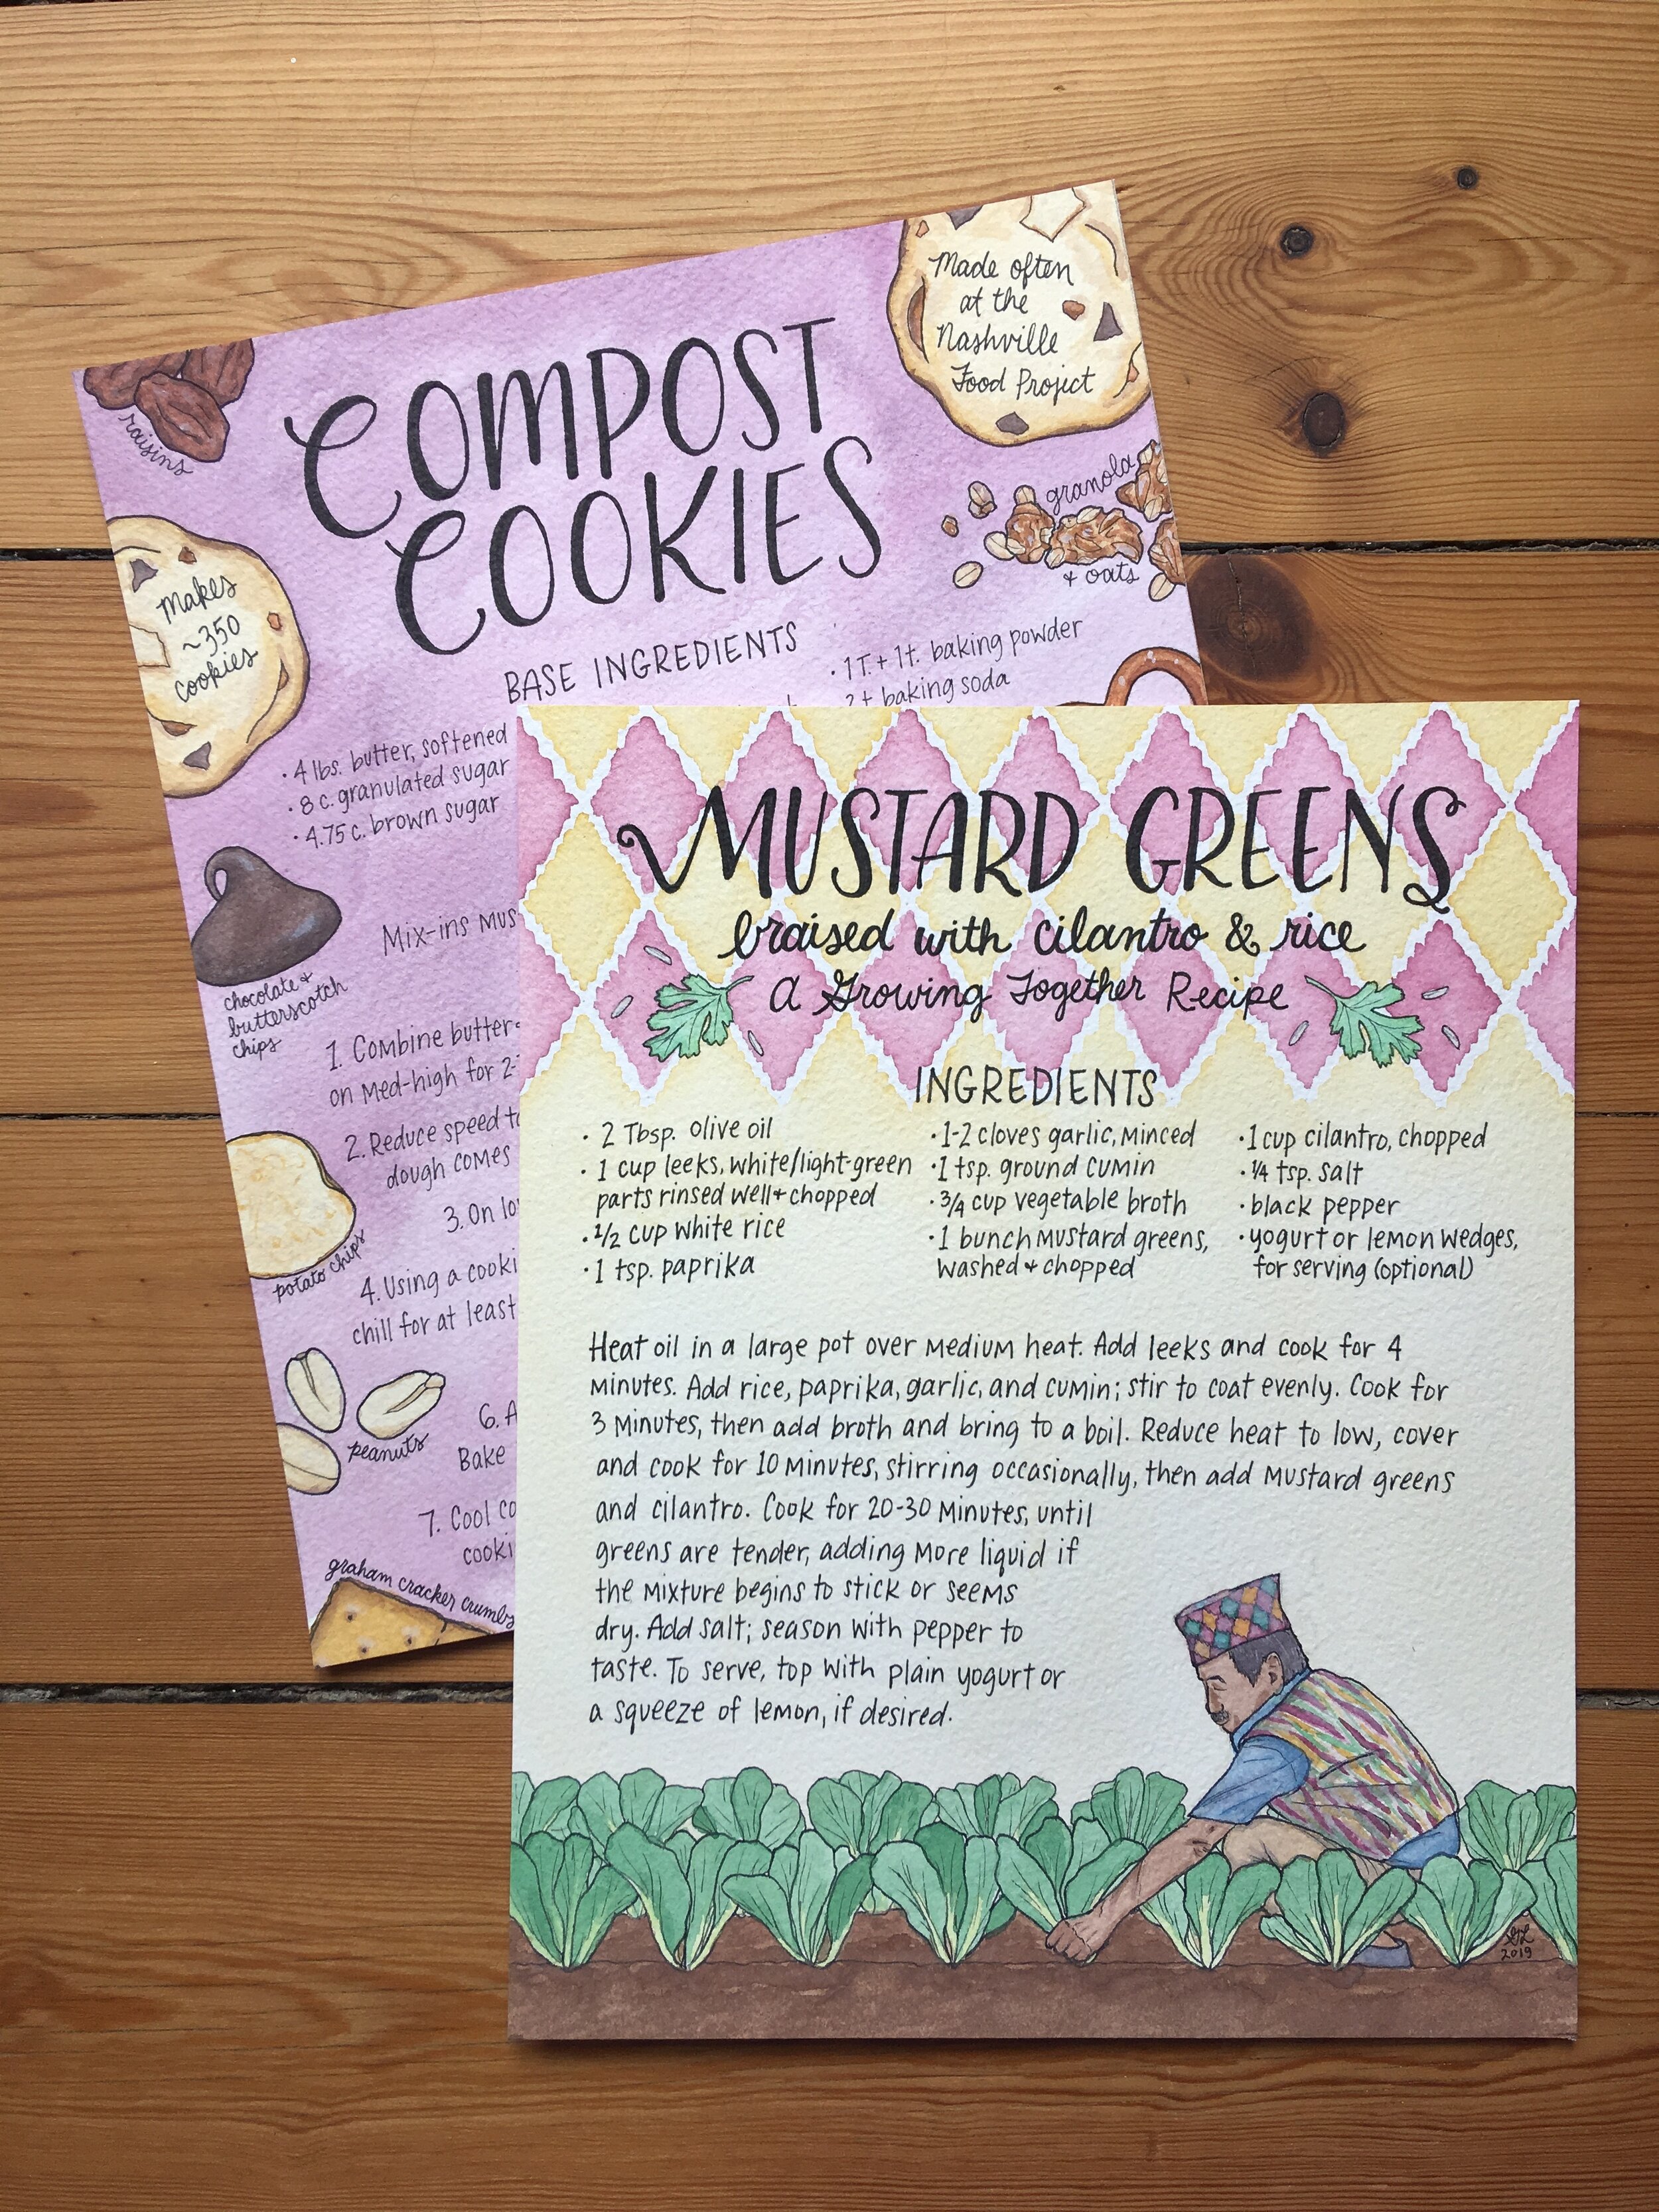 raisins
COMPOST
COOKIES
Made often
at the
Nashville
Food Project
granola
& oats
Makes
~350
cookies
BASE INGREDIENTS
• 4 lbs. butter, softened
• 8 c. granulated sugar
• 4.75 c. brown sugar
• 1T. + 1t. baking powder
baking soda
Mix-ins
chocolate +
butterscotch
chips
1. Combine butter
on med-high for
2. Reduce speed
dough comes
3. On
potato chips
4. Using a
chill for at least
peanuts
6.
Bake
7. Cool
graham cracker crumbs
MUSTARD GREENS
braised with cilantro & rice
A Growing Together Recipe
INGREDIENTS
• 2 Tbsp. olive oil
• 1 cup leeks, white/light-green
parts rinsed well + chopped
• 1/2 cup white rice
• 1 tsp. paprika
• 1-2 cloves garlic, minced
• 1 tsp. ground cumin
• 3/4 cup vegetable broth
• 1 bunch mustard greens,
washed + chopped
• 1 cup cilantro, chopped
• 1/4 tsp. salt
• black pepper
• yogurt or lemon wedges,
for serving (optional)
Heat oil in a large pot over medium heat. Add leeks and cook for 4
minutes. Add rice, paprika, garlic, and cumin; stir to coat evenly. Cook for
3 minutes, then add broth and bring to a boil. Reduce heat to low, cover
and cook for 10 minutes, stirring occasionally, then add mustard greens
and cilantro. Cook for 20-30 minutes, until
greens are tender, adding more liquid if
the mixture begins to stick or seems
dry. Add salt; season with pepper to
taste. To serve, top with plain yogurt or
a squeeze of lemon, if desired.
2019